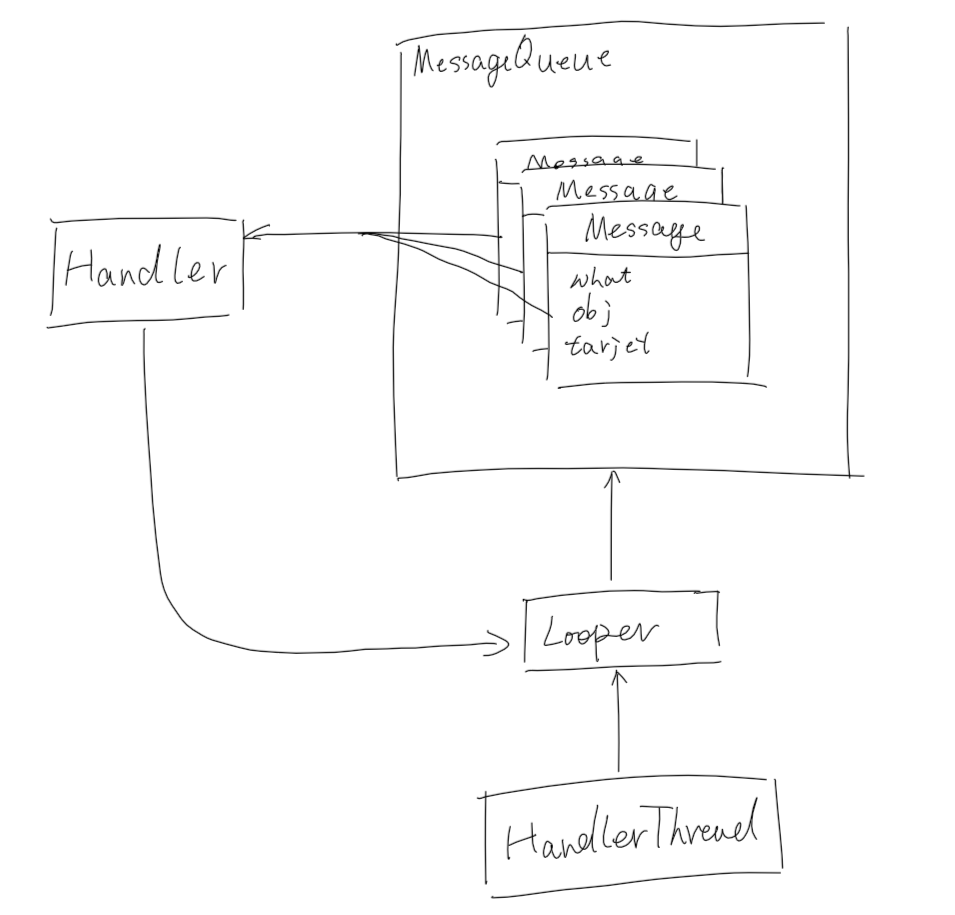 MessageQueue
Message
Message
Message
what
obj
tarjet
Handler
Looper
HandlerThread